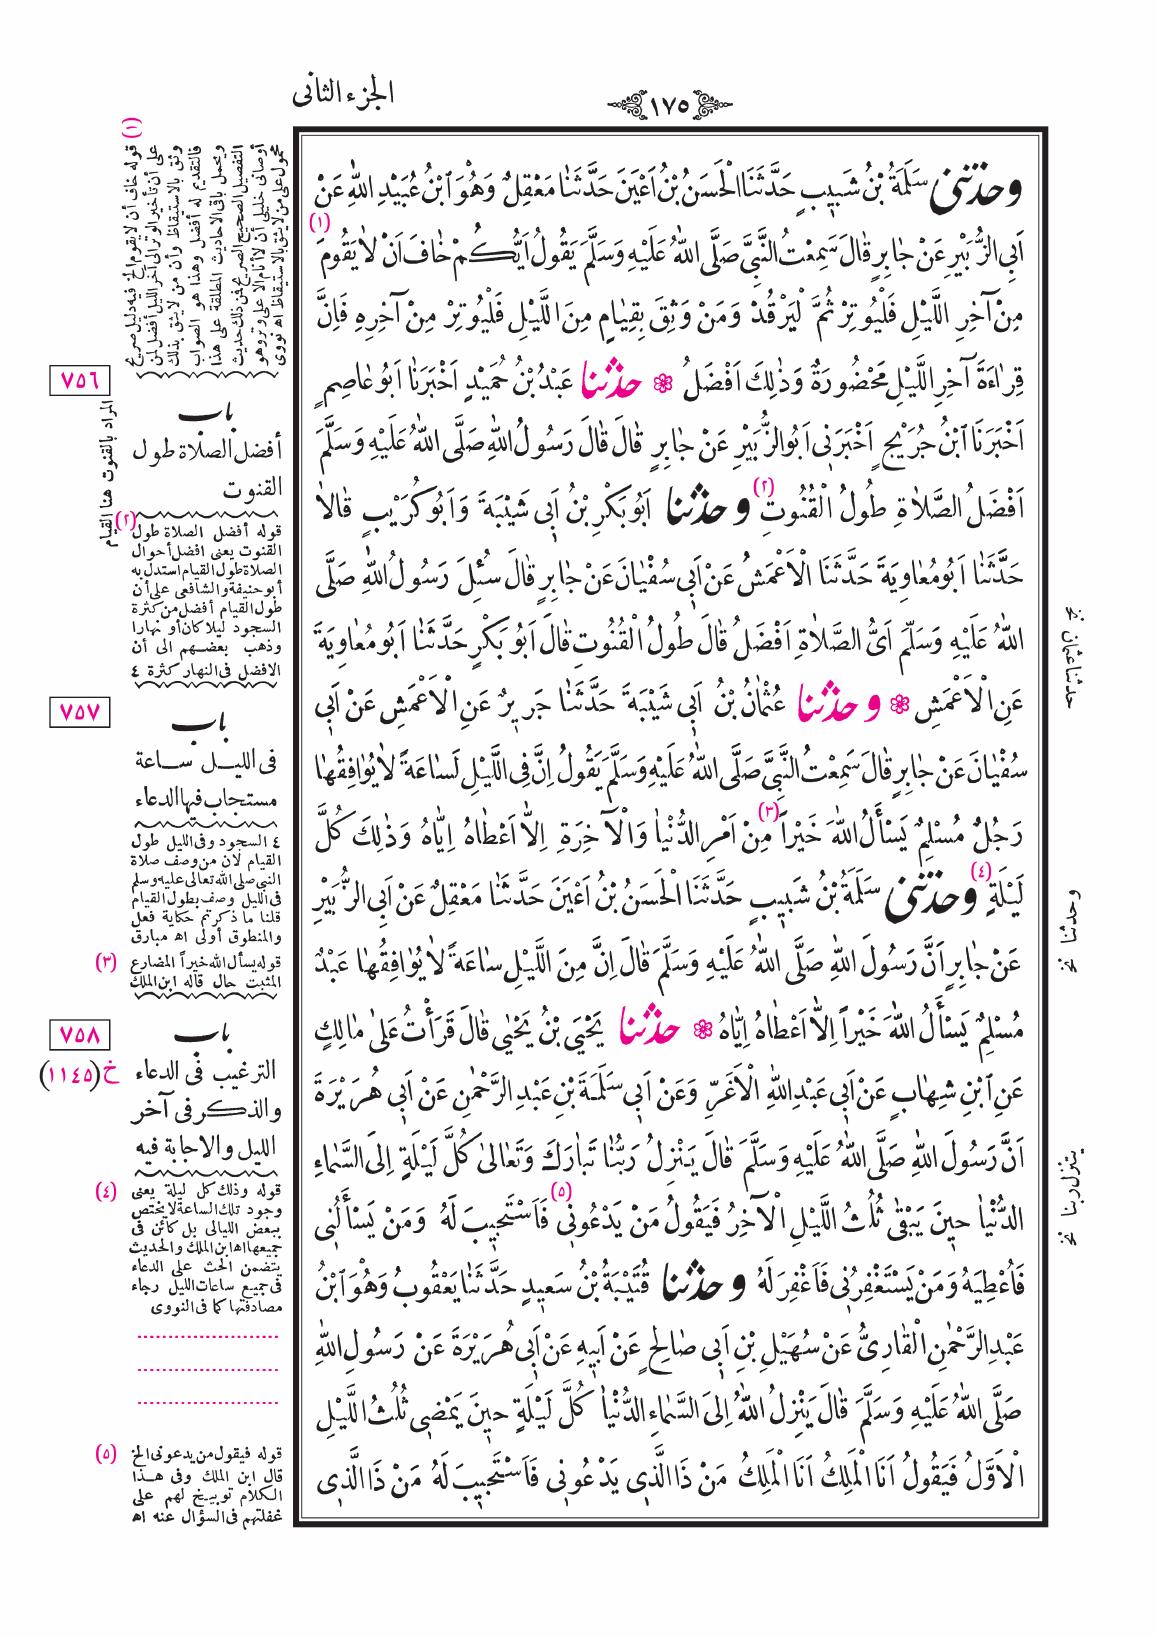 الجزء الثانى
١٧٥
وحدثنى سَلَمَةُ بْنُ شَبِيبٍ حَدَّثَنَا الْحَسَنُ بْنُ اَعْيَنَ حَدَّثَنَا مَعْقِلٌ وَهُوَ ابْنُ عُبَيْدِ اللهِ عَنْ
اَبِى الزُّبَيْرِ عَنْ جَابِرٍ قَالَ سَمِعْتُ النَّبِىَّ صَلَّى اللهُ عَلَيْهِ وَسَلَّمَ يَقُولُ اَيُّكُمْ خَافَ اَنْ لَا يَقُومَ (١)
مِنْ آخِرِ اللَّيْلِ فَلْيُوتِرْ ثُمَّ لْيَرْقُدْ وَمَنْ وَثِقَ بِقِيَامٍ مِنَ اللَّيْلِ فَلْيُوتِرْ مِنْ آخِرِهِ فَاِنَّ
قِرَاءَةَ آخِرِ اللَّيْلِ مَحْضُورَةٌ وَذٰلِكَ اَفْضَلُ ❁ حدثنا عَبْدُ بْنُ حُمَيْدٍ اَخْبَرَنَا اَبُو عَاصِمٍ
اَخْبَرَنَا ابْنُ جُرَيْجٍ اَخْبَرَنِى اَبُو الزُّبَيْرِ عَنْ جَابِرٍ قَالَ قَالَ رَسُولُ اللهِ صَلَّى اللهُ عَلَيْهِ وَسَلَّمَ
اَفْضَلُ الصَّلَاةِ طُولُ الْقُنُوتِ (٢) وحدثنا اَبُو بَكْرِ بْنُ اَبِى شَيْبَةَ وَاَبُو كُرَيْبٍ قَالَا
حَدَّثَنَا اَبُو مُعَاوِيَةَ حَدَّثَنَا الْاَعْمَشُ عَنْ اَبِى سُفْيَانَ عَنْ جَابِرٍ قَالَ سُئِلَ رَسُولُ اللهِ صَلَّى
اللهُ عَلَيْهِ وَسَلَّمَ اَىُّ الصَّلَاةِ اَفْضَلُ قَالَ طُولُ الْقُنُوتِ قَالَ اَبُو بَكْرٍ حَدَّثَنَا اَبُو مُعَاوِيَةَ
عَنِ الْاَعْمَشِ ❁ وحدثنا عُثْمَانُ بْنُ اَبِى شَيْبَةَ حَدَّثَنَا جَرِيرٌ عَنِ الْاَعْمَشِ عَنْ اَبِى
سُفْيَانَ عَنْ جَابِرٍ قَالَ سَمِعْتُ النَّبِىَّ صَلَّى اللهُ عَلَيْهِ وَسَلَّمَ يَقُولُ اِنَّ فِى اللَّيْلِ لَسَاعَةً لَا يُوَافِقُهَا
رَجُلٌ مُسْلِمٌ يَسْأَلُ اللهَ خَيْراً (٣) مِنْ اَمْرِ الدُّنْيَا وَالْآخِرَةِ اِلَّا اَعْطَاهُ اِيَّاهُ وَذٰلِكَ كُلَّ
لَيْلَةٍ (٤) وحدثنى سَلَمَةُ بْنُ شَبِيبٍ حَدَّثَنَا الْحَسَنُ بْنُ اَعْيَنَ حَدَّثَنَا مَعْقِلٌ عَنْ اَبِى الزُّبَيْرِ
عَنْ جَابِرٍ اَنَّ رَسُولَ اللهِ صَلَّى اللهُ عَلَيْهِ وَسَلَّمَ قَالَ اِنَّ مِنَ اللَّيْلِ سَاعَةً لَا يُوَافِقُهَا عَبْدٌ
مُسْلِمٌ يَسْأَلُ اللهَ خَيْراً اِلَّا اَعْطَاهُ اِيَّاهُ ❁ حدثنا يَحْيَى بْنُ يَحْيٰى قَالَ قَرَأْتُ عَلىٰ مَالِكٍ
عَنِ ابْنِ شِهَابٍ عَنْ اَبِى عَبْدِ اللهِ الْاَغَرِّ وَعَنْ اَبِى سَلَمَةَ بْنِ عَبْدِ الرَّحْمٰنِ عَنْ اَبِى هُرَيْرَةَ
اَنَّ رَسُولَ اللهِ صَلَّى اللهُ عَلَيْهِ وَسَلَّمَ قَالَ يَنْزِلُ رَبُّنَا تَبَارَكَ وَتَعَالىٰ كُلَّ لَيْلَةٍ اِلَى السَّمَاءِ
الدُّنْيَا حِينَ يَبْقىٰ ثُلُثُ اللَّيْلِ الْآخِرُ فَيَقُولُ مَنْ يَدْعُونِى (٥) فَاَسْتَجِيبَ لَهُ وَمَنْ يَسْأَلُنِى
فَاُعْطِيَهُ وَمَنْ يَسْتَغْفِرُنِى فَاَغْفِرَ لَهُ وحدثنا قُتَيْبَةُ بْنُ سَعِيدٍ حَدَّثَنَا يَعْقُوبُ وَهُوَ ابْنُ
عَبْدِ الرَّحْمٰنِ الْقَارِىُّ عَنْ سُهَيْلِ بْنِ اَبِى صَالِحٍ عَنْ اَبِيهِ عَنْ اَبِى هُرَيْرَةَ عَنْ رَسُولِ اللهِ
صَلَّى اللهُ عَلَيْهِ وَسَلَّمَ قَالَ يَنْزِلُ اللهُ اِلَى السَّمَاءِ الدُّنْيَا كُلَّ لَيْلَةٍ حِينَ يَمْضِى ثُلُثُ اللَّيْلِ
الْاَوَّلُ فَيَقُولُ اَنَا الْمَلِكُ اَنَا الْمَلِكُ مَنْ ذَا الَّذِى يَدْعُونِى فَاَسْتَجِيبَ لَهُ مَنْ ذَا الَّذِى
(١) قوله خاف أن لا يقوم الخ فيه دليل صريح
على أن تأخير الوتر الى آخر الليل أفضل لمن
وثق بالاستيقاظ وأن من لا يثق بذلك
فالتقديم له أفضل وهذا هو الصواب
ويحمل باقى الاحاديث المطلقة على هذا
التفصيل الصحيح الصريح فمن ذلك حديث
أوصانى خليلى أن لا أنام الا على وتر وهو
محمول على من لا يثق بالاستيقاظ اه نووى
٧٥٦
باب
أفضل الصلاة طول
القنوت
المراد بالقنوت هنا القيام
(٢) قوله أفضل الصلاة طول
القنوت يعنى افضل أحوال
الصلاة طول القيام استدل به
أبو حنيفة والشافعى على أن
طول القيام أفضل من كثرة
السجود ليلا كان أو نهارا
وذهب بعضهم الى أن
الافضل فى النهار كثرة ٤
٧٥٧
باب
فى الليل ساعة
مستجاب فيها الدعاء
٤ السجود وفى الليل طول
القيام لان من وصف صلاة
النبى صلى الله تعالى عليه وسلم
فى الليل وصف بطول القيام
قلنا ما ذكرتم حكاية فعل
والمنطوق أولى اه مبارق
(٣) قوله يسأل الله خيراً المضارع
المثبت حال قاله ابن الملك
٧٥٨
باب
خ (١١٤٥)
الترغيب فى الدعاء
والذكر فى آخر
الليل والاجابة فيه
(٤) قوله وذلك كل ليلة يعنى
وجود تلك الساعة لا يختص
ببعض الليالى بل كائن فى
جميعها اه ابن الملك والحديث
يتضمن الحث على الدعاء
فى جميع ساعات الليل رجاء
مصادفتها كما فى النووى
(٥) قوله فيقول من يدعونى الخ
قال ابن الملك وفى هذا
الكلام توبيخ لهم على
غفلتهم فى السؤال عنه اه
حدثنا عثمان نخ
وحدثنا نخ
يتنزل ربنا نخ